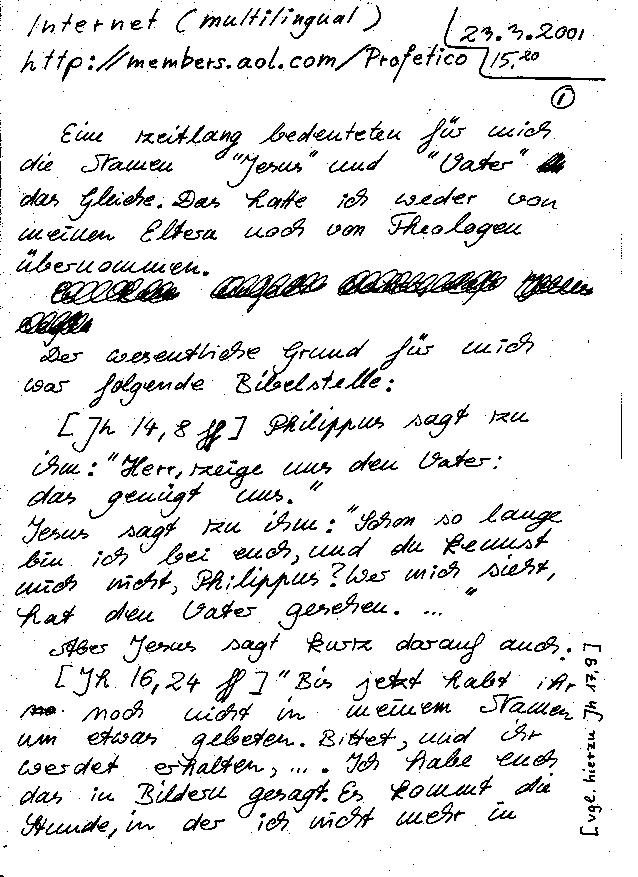 Internet (multilingual)
23.3.2001
http://members.aol.com/Profetico
15.20
1
Eine zeitlang bedeuteten für mich
die Namen "Jesus" und "Vater"
das Gleiche. Das hatte ich weder von
meinen Eltern noch von Theologen
übernommen.
Der wesentliche Grund für mich
war folgende Bibelstelle:
[Jh 14,8 ff] Philippus sagt zu
ihm: "Herr, zeige uns den Vater:
das genügt uns."
Jesus sagt zu ihm: "Schon so lange
bin ich bei euch, und du kennst
mich nicht, Philippus? Wer mich sieht,
hat den Vater gesehen. ..."
Aber Jesus sagt kurtz darauf auch:
[Jh 16,24 ff] "Bis jetzt habt ihr
noch nicht in meinem Namen
um etwas gebeten. Bittet, und ihr
werdet erhalten, ... . Ich habe euch
das in Bildern gesagt. Es kommt die
Stunde, in der ich nicht mehr in
[vgl. hierzu Jh 17,9]